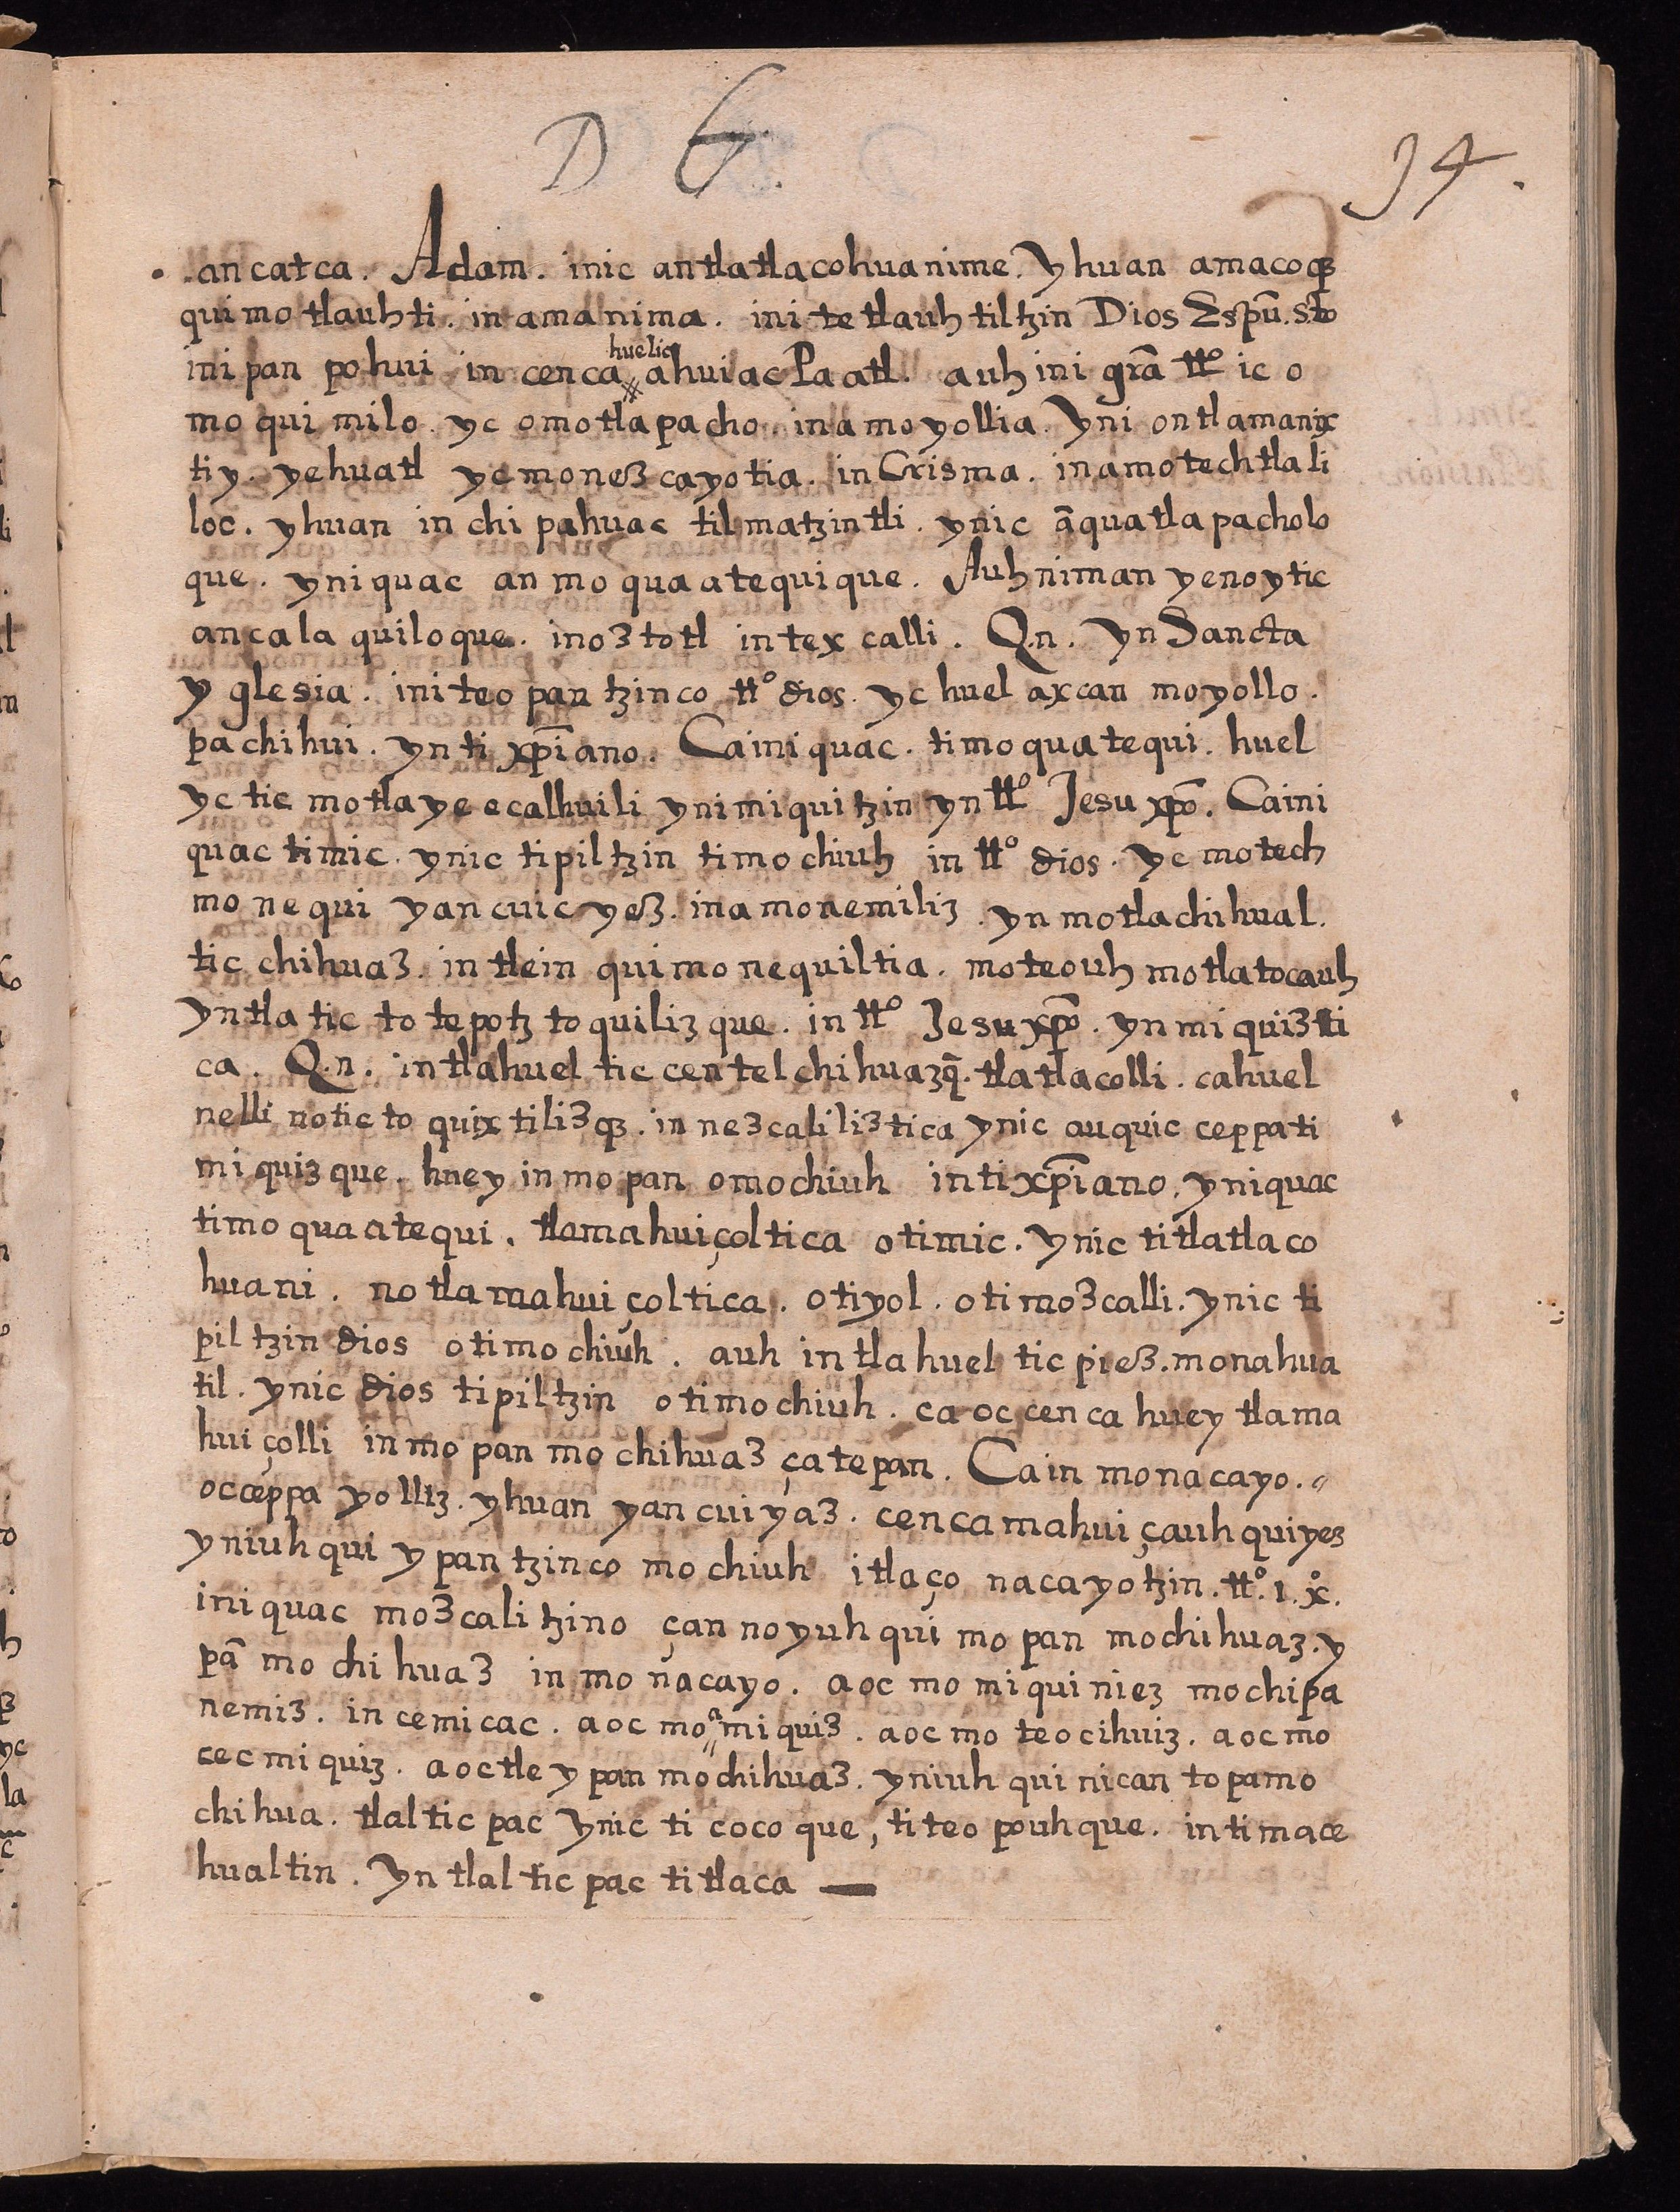 D 6.
94.
.ancatca. Adam. inic antlatlacohuanime. Yhuan amacoq̃
quimo tlauhti. in amanima. ini tetlauhtiltzin Dios Espũ.sto
ini pan pohui in cenca huelic ahuiac Pa atl. auh ini grã tt.º ic o
mo qui milo. yc omotlapacho. in amo yollia. Yni ontlamanix
ti y. yehuatl yc monezcayotia. in Crisma. in amotechtlali
loc. yhuan in chipahuac tilmatzintli. ynic ãquatlapacholo
que. yniquac an mo quaatequique. Auh niman yenoytic
ancala quiloque. inoztotl in texcalli. Q.n. Yn Sancta
Yglesia. initeopantzinco tt.º dios. yc huel axcan moyollo.
pachihui. yn ti xp̃iano. Cainiquac. timoquatequi. huel
yc tic motlayeecalhuili ynimiquitzin yn tt.º Jesu xp̃o. Caini
quac timic. ynic tipiltzin timochiuh in tt.º dios. yc motech
monequi yancuic yez. inamonemiliz. yn motlachihual.
tic chihuaz. in tlein quimonequiltia. moteouh motlatocauh
yntla tic totepotztoquilizque. in tt.º Jesu xp̃o. yn miquizti
ca. Q.n. intlahuel tic centelchihuazq̃. tlatlacolli. cahuel
nelli notic to quixtilizq̃. in nezcaliliztica ynic auquic ceppa ti
miquizque. huey in mopan omochiuh in tixp̃iano. yniquac
timo quaatequi. tlamahuiçoltica otimic. Ynic titlatlaco
huani. no tlamahuiçoltica. otiyol. otimozcalli. ynic ti
piltzin dios otimochiuh. auh intlahuel tic piez. monahua
til. ynic dios tipiltzin otimochiuh. ca oc cenca huey tlama
huiçolli in mopan mochihuaz çatepan. Ca in monacayo.
occeppa yolliz. yhuan yancuiyaz. cenca mahuiçauhqui yez
yniuhqui ypantzinco mochiuh itlaço nacayotzin. tt.º. J. x̊.
iniquac mozcalitzino çan noyuhqui mopan mochihuaz. y
pã mochihuaz in monacayo. aocmo miquiniez mochipa
nemiz. in cemicac. aocmo amiquiz. aocmo teocihuiz. aocmo
cecmiquiz. aoctle ypan mochihuaz. yniuhqui nican topamo
chihua. tlalticpac ynic ti cocoque, titeopouhque. intimace
hualtin. Yn tlalticpac titlaca —